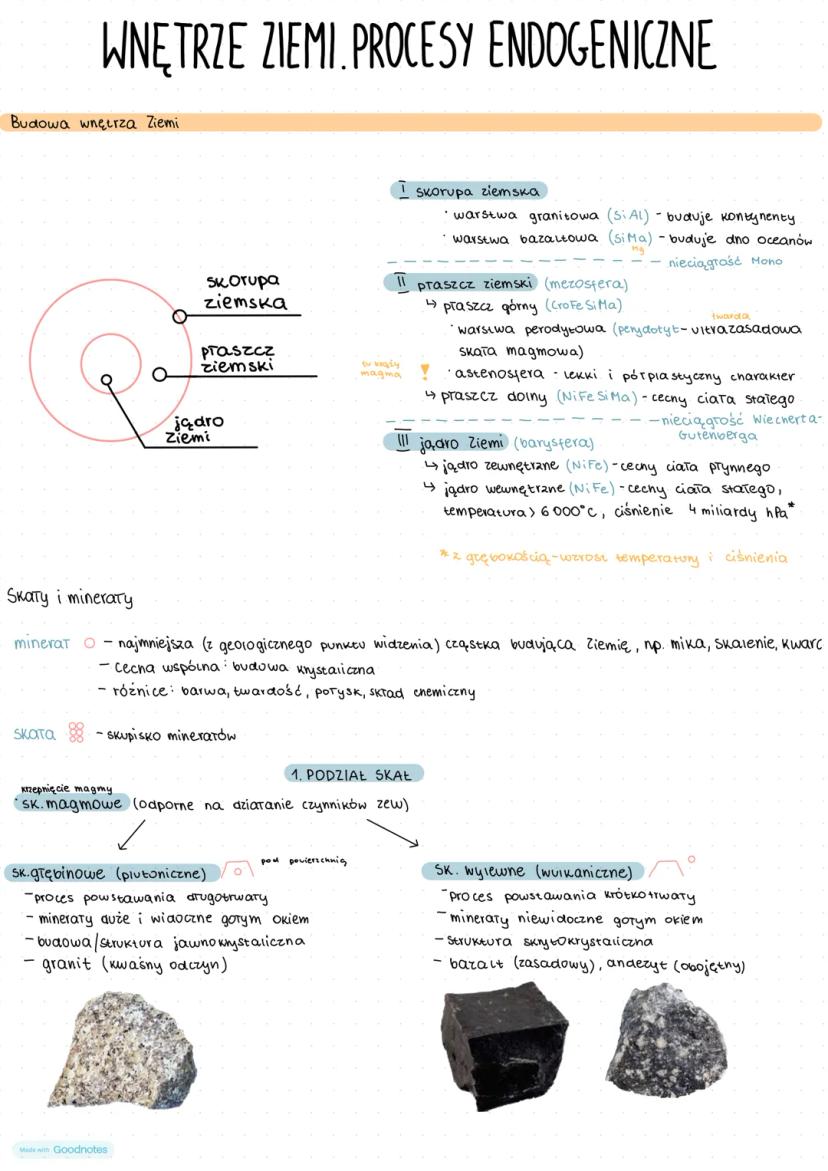 WNĘTRZE ZIEMI. PROCESY ENDOGENICZNE
Budowa wnętrza Ziemi
skorupa
ziemska
płaszcz
ziemski
jądro
ziemi
I skorupa ziemska
· warstwa granitowa (SiAl) - buduje kontynenty
· warstwa bazaltowa (SiMa) - buduje dno oceanów
Mg
nieciągłość Moho
II płaszcz ziemski (mezosfera)
↳ płaszcz górny (CroFeSiMa)
twarda
· warstwa perodytowa (perydotyt - ultrazasadowa
skała magmowa)
tu krąży
magma
! · astenosfera - lekki i półplastyczny charakter
↳ płaszcz dolny (NiFeSiMa) - cechy ciała stałego
nieciągłość Wiecherta-
Gutenberga
III jądro Ziemi (barysfera)
↳ jądro zewnętrzne (NiFe) - cechy ciała płynnego
↳ jądro wewnętrzne (NiFe) - cechy ciała stałego,
temperatura > 6 000°C, ciśnienie 4 miliardy hPa*
* z głębokością - wzrost temperatury i ciśnienia
Skały i minerały
minerał - najmniejsza (z geologicznego punktu widzenia) cząstka budująca Ziemię, np. mika, skalenie, kwarc
- cecha wspólna: budowa krystaliczna
- różnice: barwa, twardość, połysk, skład chemiczny
skała - skupisko minerałów
1. PODZIAŁ SKAŁ
krzepnięcie magmy
· sk. magmowe (odporne na działanie czynników zew)
sk. głębinowe (plutoniczne) pod powierzchnią
- proces powstawania długotrwały
- minerały duże i widoczne gołym okiem
- budowa/struktura jawnokrystaliczna
- granit (kwaśny odczyn)
sk. wylewne (wulkaniczne)
- proces powstawania krótkotrwały
- minerały niewidoczne gołym okiem
- struktura skrytokrystaliczna
- bazalt (zasadowy), andezyt (obojętny)
Made with Goodnotes